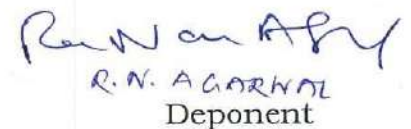 R. N. AGARWAL
Deponent